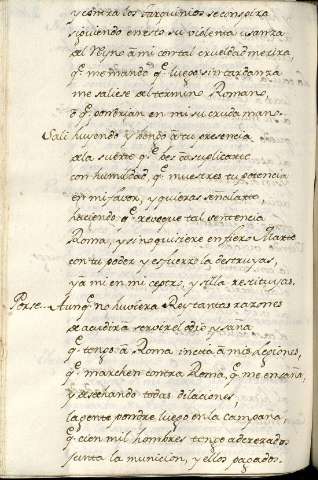 y contra los tarquinios se conspira
siguiendo en esto su violenta usança
del Reyno a mi con tal crueldad me tira,
q̃. me mandò q̃. luego sin tardanza
me saliese del termino Romano,
ò q̃. pondrian en mi su cruda mano.
Salì huiendo y vengo à tu presencia
de la suerte q̃. ves à suplicarte
con humildad, q̃. muestres tu potencia
en mi favor, y quieras señalarte
haciendo q̃. revoque tal sentencia
Roma, y si no quisiere en fiero Marte
con tu poder y esfuerzo la destruyas,
y à mi en mi ceptro, y silla restituyas.
Porse. Aunq̃. no huviera Rey tantas razones
de acudir à servir el odio y saña
q̃. tengo à Roma incita à mis legiones,
q̃. marchen contra Roma, q̃. me ensaña,
y desechando todas dilaciones,
la gente pondre luego en la campaña,
q̃. cien mil hombres tengo aderezados
junta la municion, y ellos pagados.